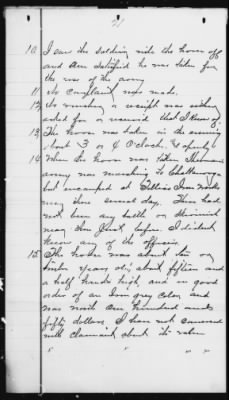 21
10. I saw the soldiers ride the horse off
and am satisfied he was taken for
the use of the army
11. No complaint was made.
12. No voucher or receipt was either
asked for or received that I know of.
13. The horse was taken in the evening
about 3 or 4 O'clock, & openly
14. When the horse was taken Sherman's
army was marching to Chattanooga
but encamped at Tellico Iron Works
near there several days. There had
not been any battle or skirmish
near there just before. I didnt
know any of the officers.
15. The horse was about ten or
twelve years old, about fifteen and
a half hands high, and in good
order of an Iron grey color, and
was worth One hundred and
fifty dollars. I have not conversed
with claimant about its value